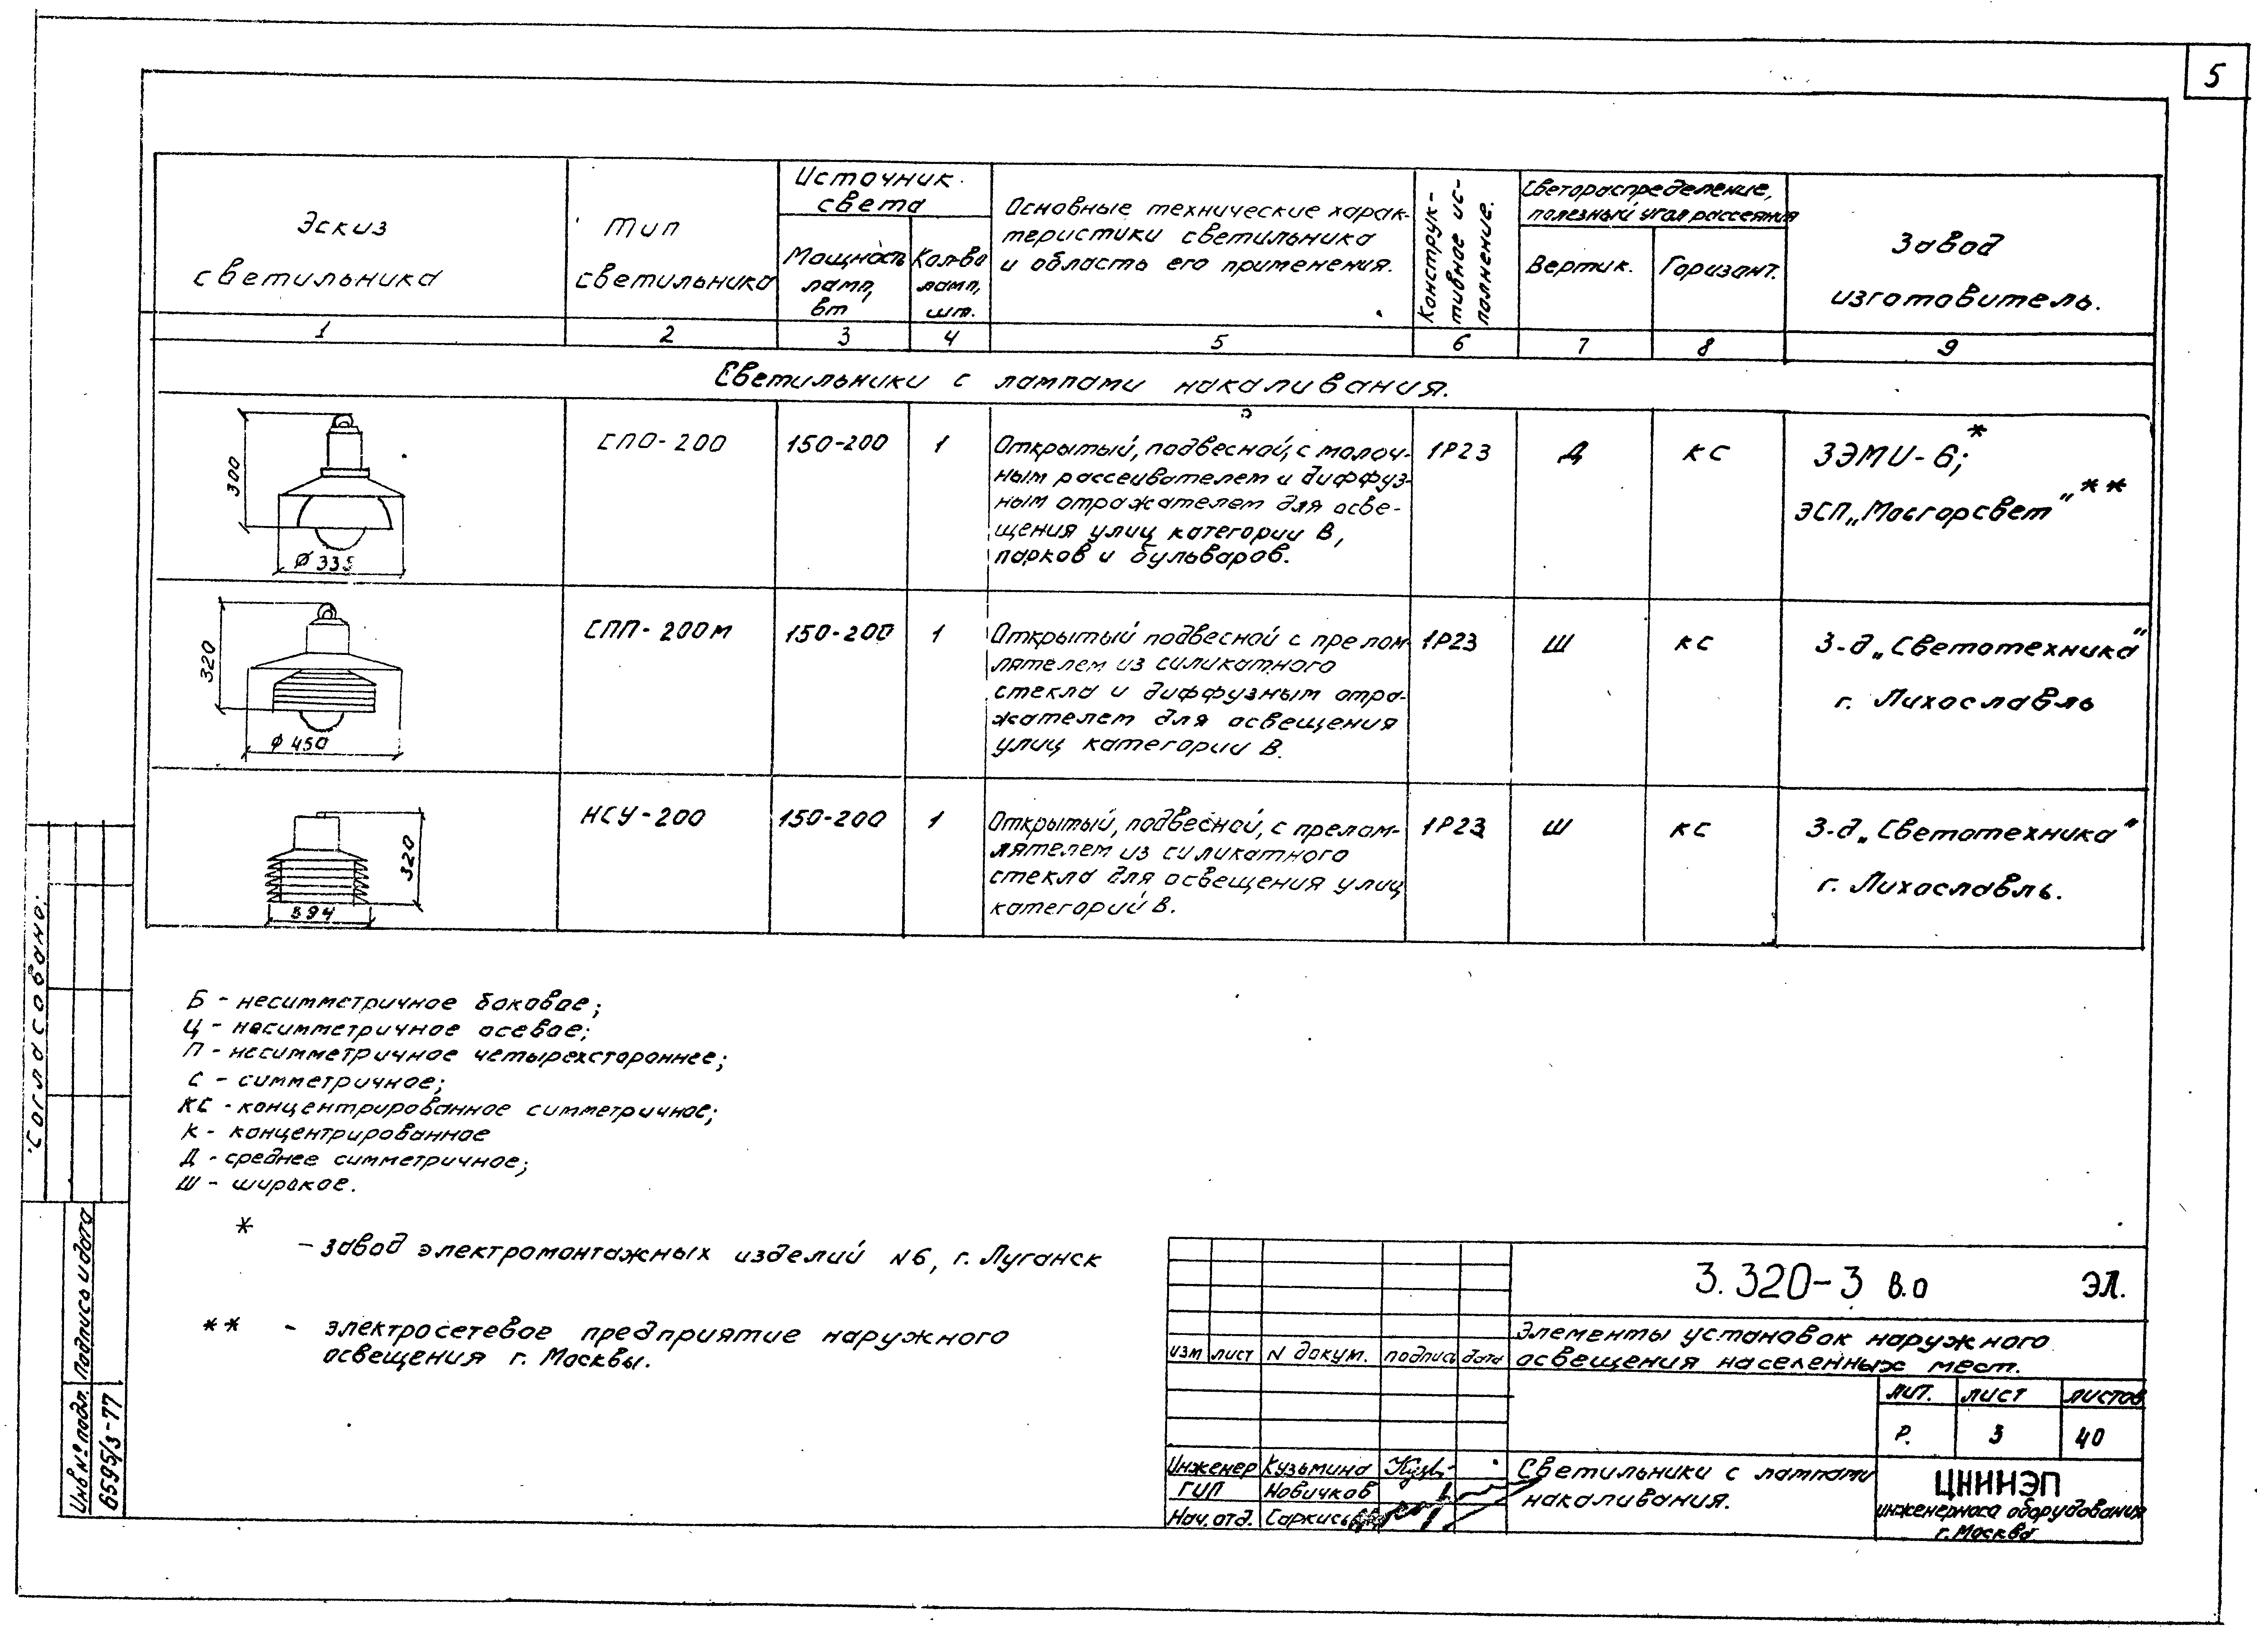 5
Эскиз
светильника
Тип
светильника
Источник
света
Мощность
ламп,
вт
Кол-во
ламп,
шт.
Основные технические харак-
теристики светильника
и область его применения.
Конструк-
тивное ис-
полнение.
Светораспределение,
полезный угол рассеяния
Вертик.
Горизонт.
Завод
изготовитель.
1 2 3 4 5 6 7 8 9
Светильники с лампами накаливания.
300
Ø 335
СПО-200
150-200
1
Открытый, подвесной, с молоч-
ным рассеивателем и диффуз-
ным отражателем для осве-
щения улиц категории В,
парков и бульваров.
1Р23
Д
КС
ЗЭМИ-6;*
ЭСП „Мосгорсвет"**
320
Ø 450
СПП-200М
150-200
1
Открытый подвесной с прелом
лятелем из силикатного
стекла и диффузным отра-
жателем для освещения
улиц категории В.
1Р23
Ш
КС
З-д „Светотехника"
г. Лихославль
320
394
НСУ-200
150-200
1
Открытый, подвесной, с прелом-
лятелем из силикатного
стекла для освещения улиц
категорий В.
1Р23
Ш
КС
З-д „Светотехника"
г. Лихославль.
Б - несимметричное боковое;
Ц - несимметричное осевое;
П - несимметричное четырехстороннее;
С - симметричное;
КС - концентрированное симметричное;
К - концентрированное
Д - среднее симметричное;
Ш - широкое.
* - завод электромонтажных изделий N6, г. Луганск
** - электросетевое предприятие наружного
освещения г. Москвы.
Согласовано:
Подпись и дата
Инв № подл.
6595/3-77
3.320-3 В.0 ЭЛ.
Элементы установок наружного
освещения населенных мест.
изм лист N докум. подпись дата
лит. лист листов
Р. 3 40
Инженер Кузьмина
ГИП Новичков
Нач. отд.
Светильники с лампами
накаливания.
ЦНИИЭП
инженерного оборудования
г. Москва